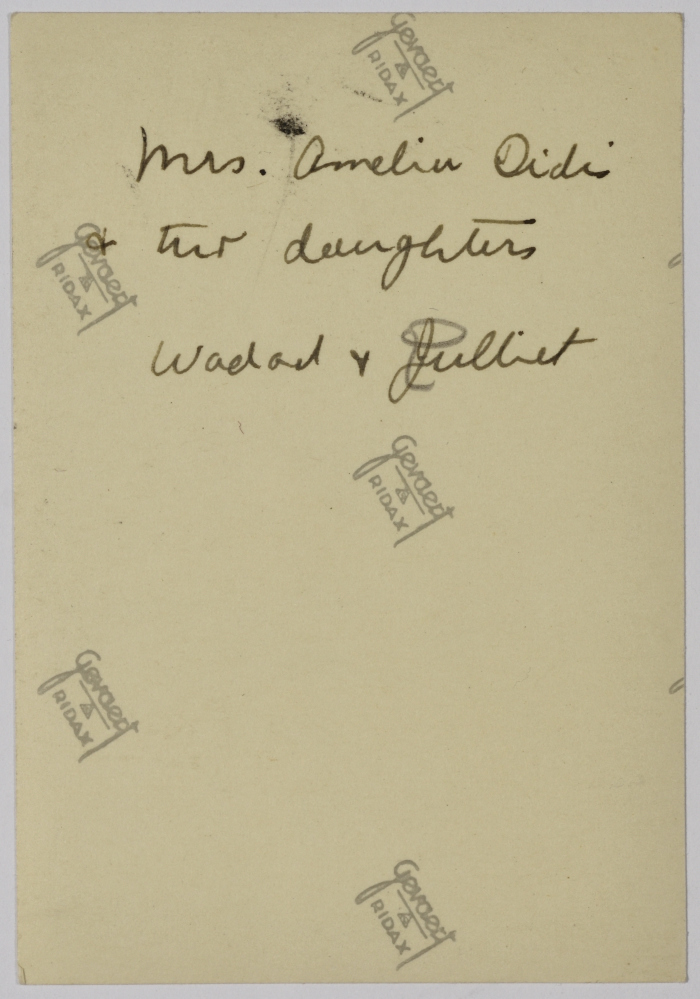 Mrs. Amelia Didis
& two daughters
Wadad & Julliet
Gevaert
RIDAX
Gevaert
RIDAX
Gevaert
RIDAX
Gevaert
RIDAX
Gevaert
RIDAX